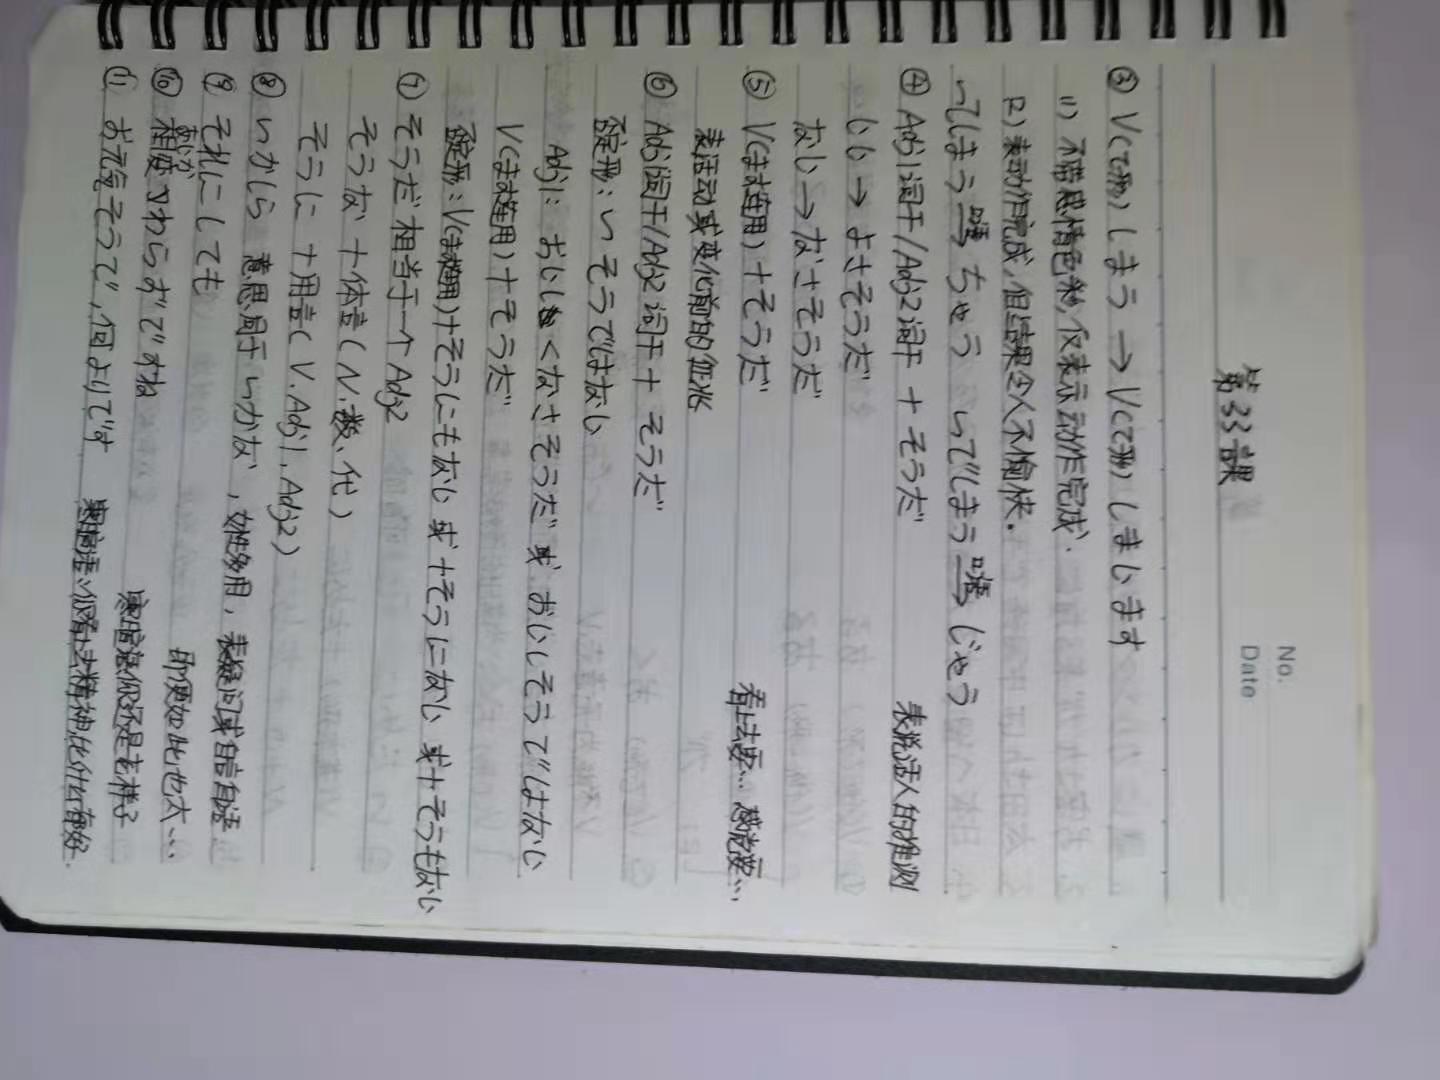 No.
Date
第33課
③ V(て形)しまう → V(て形)しまいます
(1) 不带感情色彩,仅表示动作完成.
(2) 表动作完成,但结果令人不愉快。
〜てしまう 口語 ちゃう 〜でしまう 口語 じゃう
④ Adj1词干/Adj2词干 + そうだ 表说话人的推测
いい→よさそうだ
ない→なさそうだ
⑤ V(ます连用)+そうだ 看上去要… 感觉要…
表活动或变化前的征兆
⑥ Adj1词干/Adj2词干 + そうだ
否定形:〜そうではない
Adj1: おいしくなさそうだ 或 おいしそうではない
V(ます连用)+そうだ
否定形:V(ます连用)+そうにもない 或 +そうにない 或 +そうもない
⑦ そうだ 相当于一个Adj2
そうな +体言(N、数、代)
そうに +用言(V.Adj1、Adj2)
⑧ 〜かしら 意思同于〜かな,女性多用,表疑问或自言自语
⑨ それにしても 即便如此也太…
⑩ 相変わらずですね 寒暄语,你还是老样子
あいか
⑪ お元気そうで,何よりです 寒暄语,你看上去精神比什么都好.